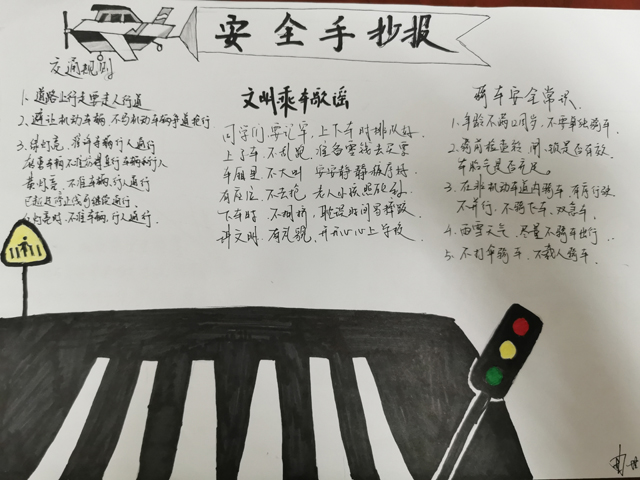 安全手抄报
交通规则
1、道路上行走要走人行道
2、避让机动车辆，不与机动车辆争道抢行
3、绿灯亮，准许车辆行人通行
黄灯亮，不准车辆行人通行
已超过停止线可继续通行
红灯亮时，不准车辆，行人通行。
文明乘车歌谣
同学们，要记牢，上下车时排队好。
上了车，不乱跑，准备零钱
车厢里，不大叫，安安静静
有座位，不去抢，老人小孩照顾到。
下车时，不拥挤，
讲文明，有礼貌，开开心心上学校。
骑车安全常识
1、年龄不满12周岁，不要单独骑车。
2、骑前检查铃、闸、锁是否有效，
车胎气是否充足。
3、在非机动车道内骑车，有序行驶
不并行，不骑飞车，双手车。
4、雨雪天气，尽量不骑车出行
5、不打伞骑车，不载人骑车。